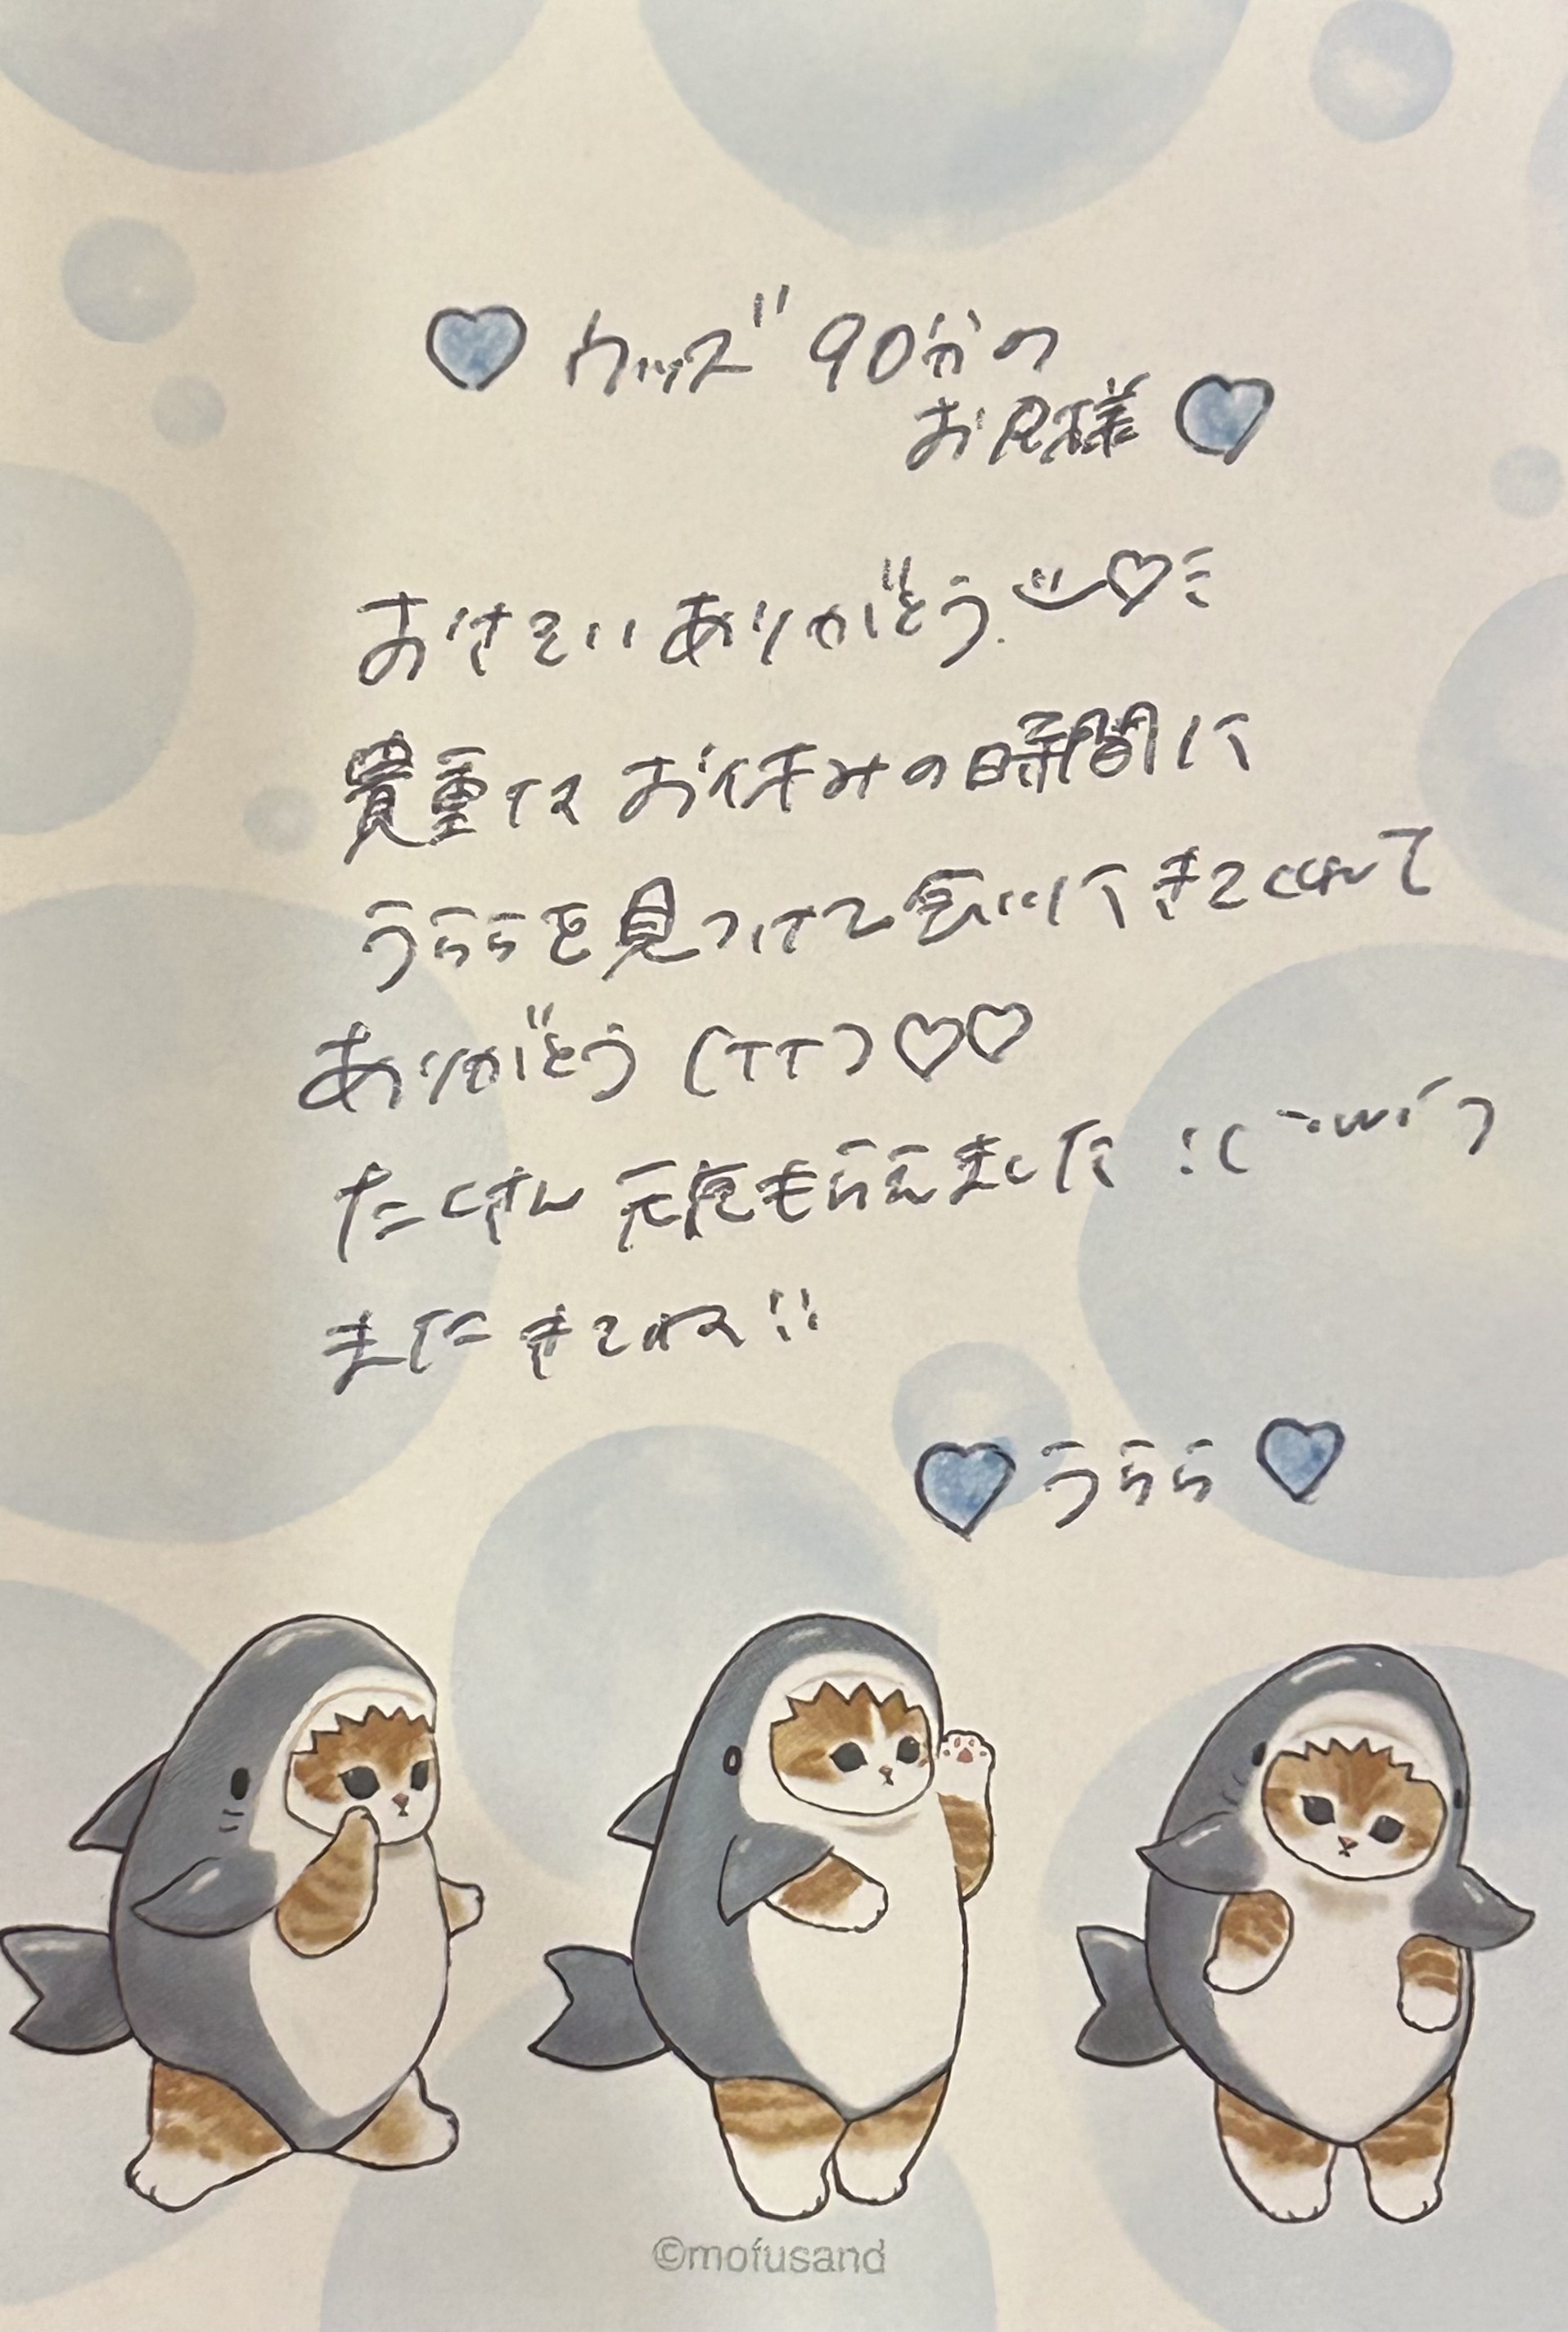 ♡ウッズ 90分の
お兄様♡
おさそいありがとう♡
貴重な お休みの時間に
うららを見つけて会いにきてくれて
ありがとう (TT)♡♡
たくさん 元気もらえました :( ˘ω˘ )
またきてね!!
♡うらら♡
©mofusand